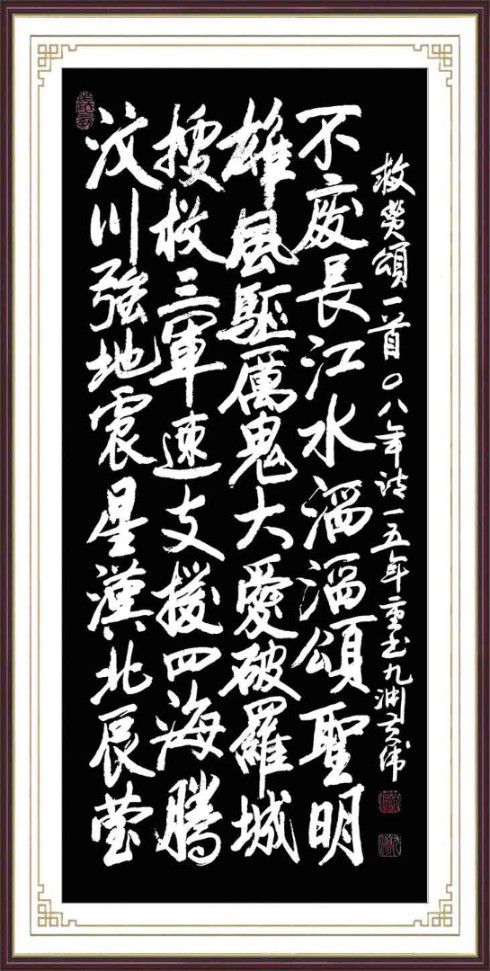 汶川強地震星漢北辰瑩
搜救三軍速支援四海騰
雄風驅厲鬼大愛破羅城
不廢長江水滔滔頌聖明
頌一首〇八年詩一五年重书九渊